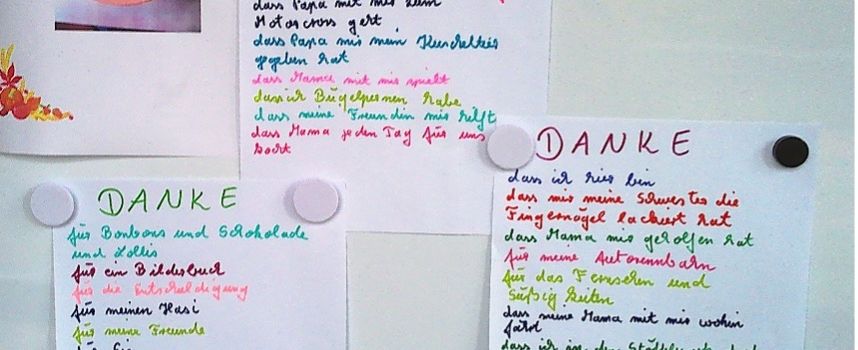 dass Papa mit mir zum
Motocross geht
dass Papa mir mein Kuscheltier
gegeben hat
dass Mama mit mir spielt
dass ich Bügelpernen habe
dass meine Freundin mir hilft
dass Mama jeden Tag für uns
kocht
DANKE
für Bonbons und Schokolade
und Lollis
für ein Bilderbuch
für die Entschuldigung
für meinen Hasi
für meine Freunde
DANKE
dass ich hier bin
dass mir meine Schwester die
Fingernägel lackiert hat
dass Mama mir geholfen hat
für meine Autorennbahn
für das Fernsehen und
Süßigkeiten
dass meine Mama mit mir wohin
fährt
dass ich in den